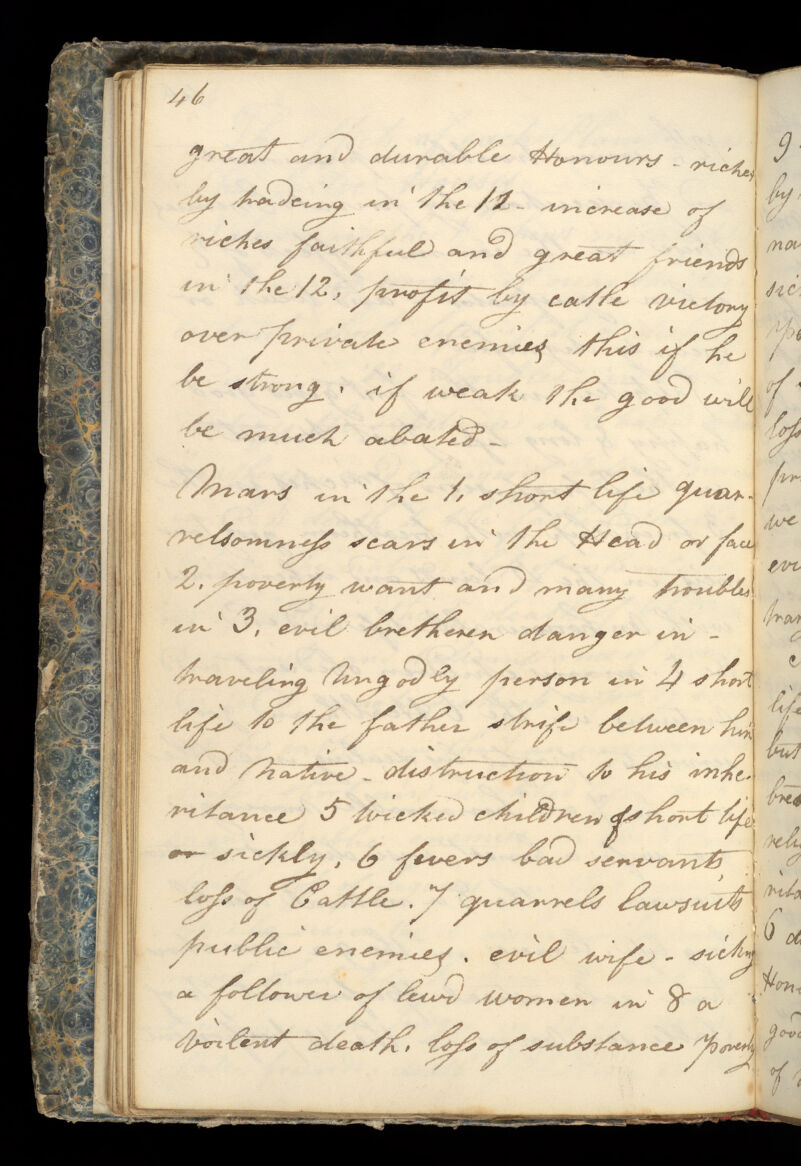 46
great and durable Honours - riches
by tradeing in the 11 - increase of
riches faithful and great friends
in the 12, profit by catle victory
over private enemies this if he
be strong. if weak the good will
be much abated -
Mars in the 1, short life quar-
relsomness scars in the Head or face
2. poverty want and many troubles
in 3. evil bretheren danger in -
traveling Ungodly person in 4 short
life to the father strife between him
and Native - distruction to his inhe-
ritance 5 Wicked children of short life
or sickly. 6 fevers bad servants
loss of Cattle. 7 quarrels lawsuits
public enemies. evil wife - sickly
a follower of lewd women in 8 a
Voilent death. loss of substance poverty
9
by
na
sic
of
loss
pr
we
evi
trav
life
but
bre
relig
rita
6 d
Hon
good
of